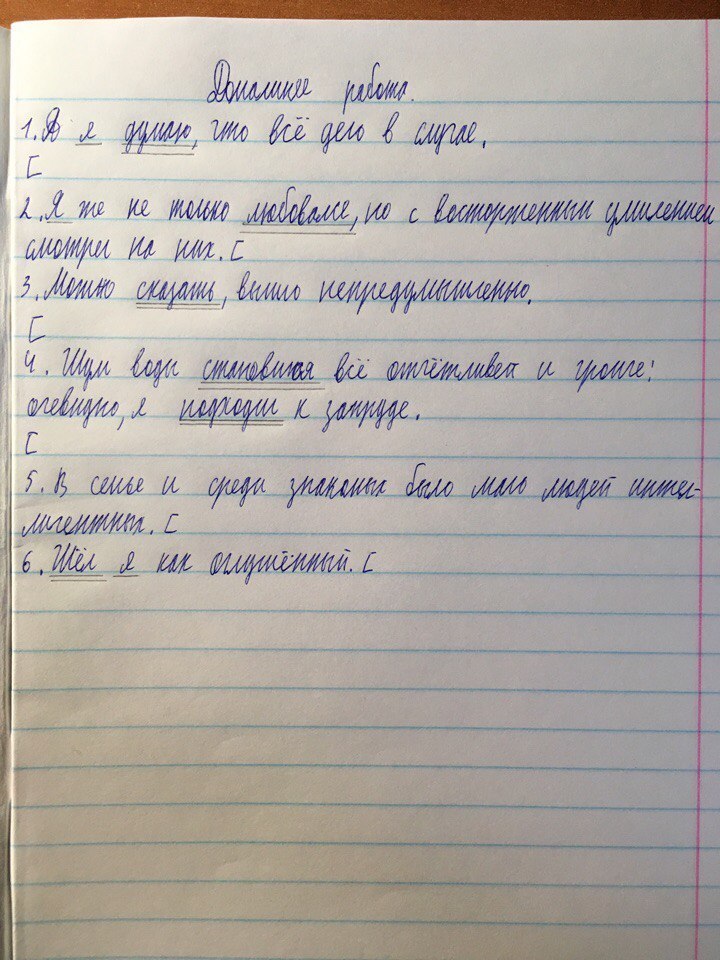 Домашнее работа.
1. А я думаю, что всё дело в случае.
[
2. Я же не только любовался, но с восторженным умилением
смотрел на них. [
3. Можно сказать, вышло непредумышленно.
[
4. Шум воды становился всё отчётливей и громче:
очевидно, я подходил к запруде.
[
5. В семье и среди знакомых было мало людей интел-
лигентных. [
6. Шёл я как оглушённый. [